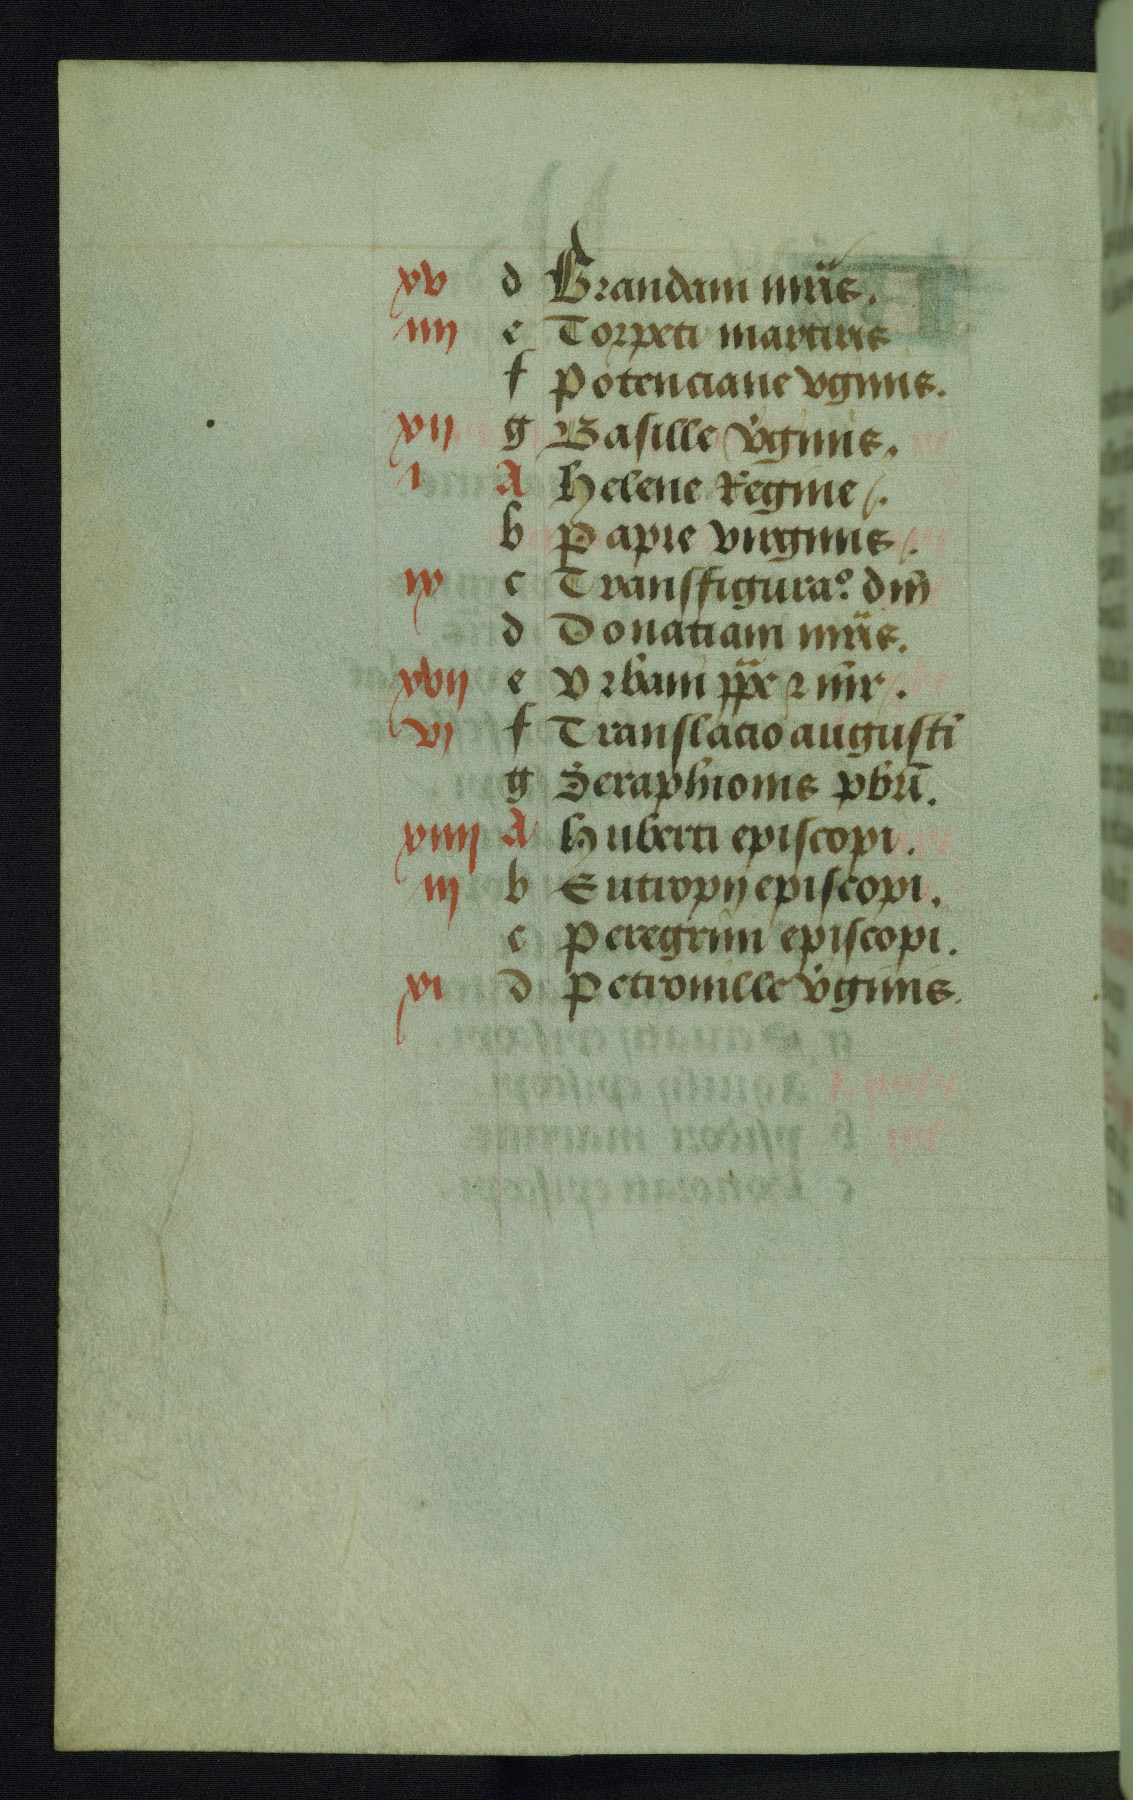 xv d Brandani mr̃is.
iiij e Torpeti martiris
f Potenciane vginis.
xij g Basille v̾ginis.
i A Helene Regine.
b Papie virginis.
ix c Transffigura.o dñi
d Donatiani mr̃is.
xvij e Vrbani pp̃e ⁊ mr̃.
vj f Translacio augusti
g Seraphionis pbr̃i.
xiiij A Huberti episcopi.
iij b Eutropij episcopi.
c Peregrini episcopi.
xi d Petronille v̾ginis.